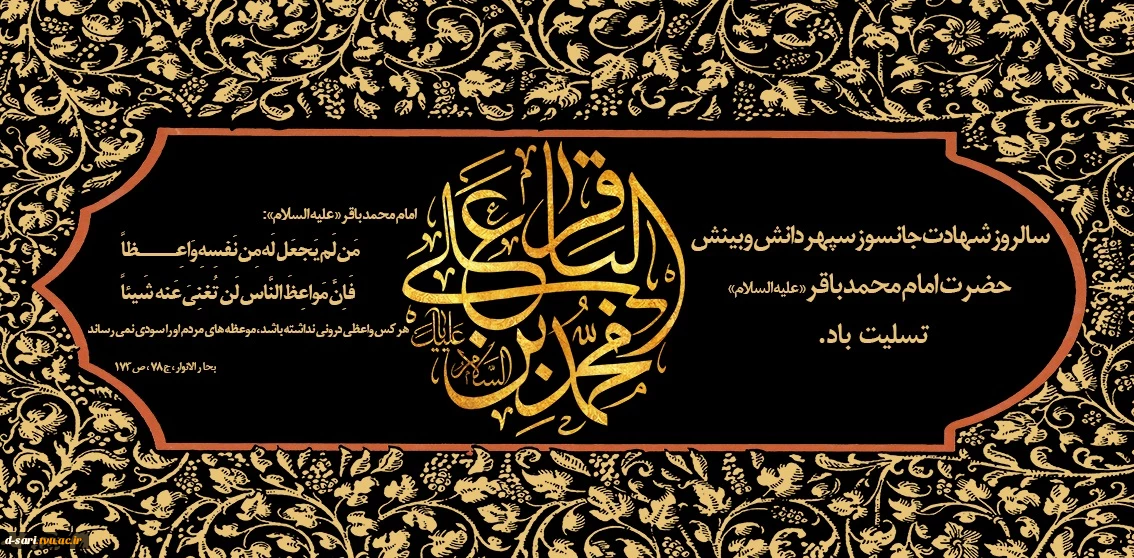 سالروز شهادت جانسوز سپهر دانش و بینش
حضرت امام محمد باقر «علیه السلام»
تسلیت باد.
محمد بن علی الباقر
علیک
السلام
امام محمد باقر «علیه السلام»:
مَن لَم یَجعَل لَه مِن نَفسِهِ وَاعِظاً
فَاِنَّ مَواعِظَ النَّاسِ لَن تُغنِیَ عَنه شَیئاً
هر کس واعظی درونی نداشته باشد، موعظه های مردم او را سودی نمی رساند
بحار الانوار، ج ۷۸، ص ۱۷۳
d-sari.tvu.ac.ir